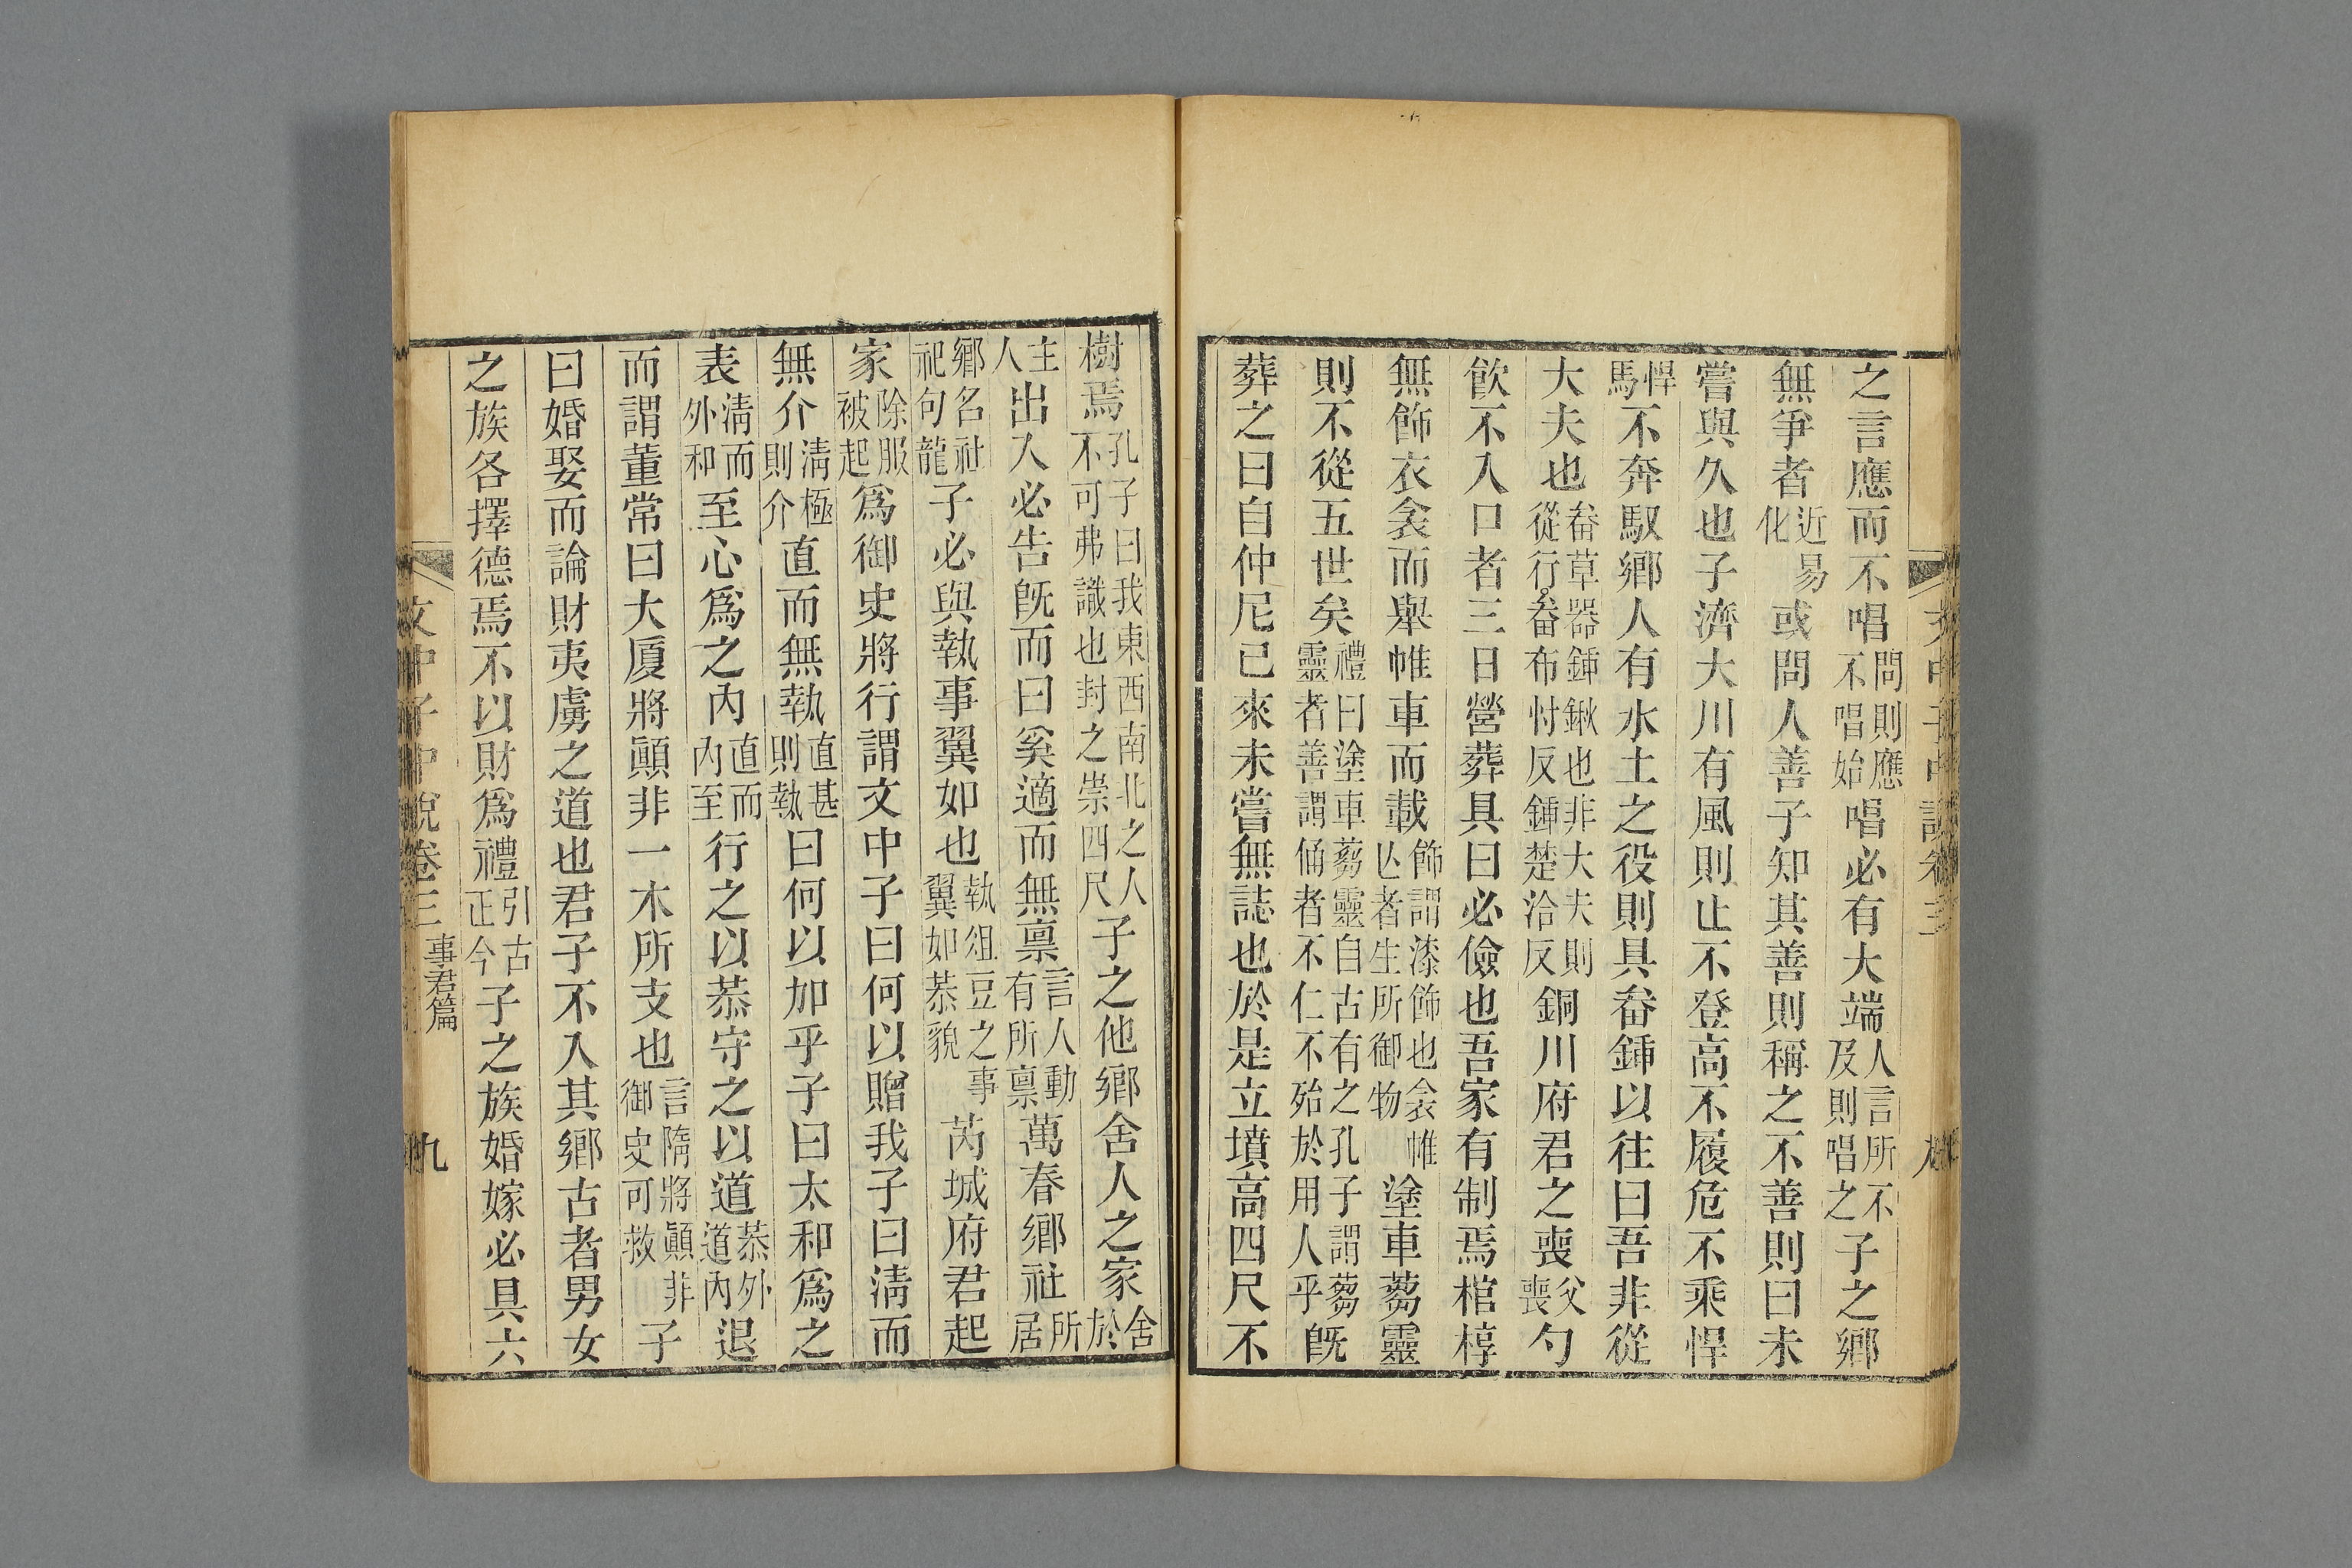 之言應而不唱問則應不唱始唱必有大端人言所不及則唱之子之鄉
無爭者近易化或問人善子知其善則稱之不善則曰未
嘗與久也子濟大川有風則止不登高不履危不乘悍
悍馬不奔馭鄉人有水土之役則具畚鍤以往曰吾非從
大夫也畚草器鍤鍬也非大夫則從行畚布忖反鍤楚洽反銅川府君之喪父喪勺
飮不入口者三日營葬具曰必儉也吾家有制焉棺椁
無飾衣衾而舉帷車而載飾謂漆飾也衾帷亾者生所御物塗車蒭靈
則不從五世矣禮曰塗車蒭靈自古有之孔子謂蒭靈者善謂俑者不仁不殆於用人乎旣
葬之曰自仲尼已來未嘗無誌也於是立墳高四尺不
樹焉孔子曰我東西南北之人不可弗識也封之崇四尺子之他鄉舍人之家舍於
主人出入必告旣而曰奚適而無稟言人動有所稟萬春鄉社所居
鄉名社祀句龍子必與執事翼如也執俎豆之事翼如恭貌芮城府君起
家除服被起爲御史將行謂文中子曰何以贈我子曰淸而
無介淸極則介直而無執直甚則執曰何以加乎子曰太和爲之
表淸而外和至心爲之內直而內至行之以恭守之以道恭外道內退
而謂董常曰大厦將顚非一木所支也言隋將顚非御史可救子
曰婚娶而論財夷虜之道也君子不入其鄉古者男女
之族各擇德焉不以財爲禮引古正今子之族婚嫁必具六
文中子中說卷三 事君篇 九